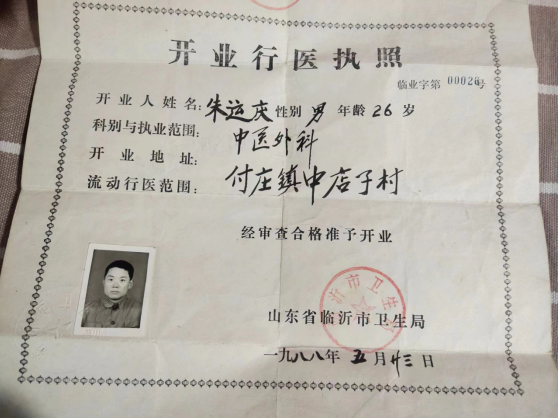 开业行医执照
临业字第00020号
开业人姓名:朱运庆 性别 男 年龄 26 岁
科别与执业范围:中医外科
开业地址:
流动行医范围:付庄镇中店子村
经审查合格准予开业
山东省临沂市卫生局
一九八八年 五 月 廿三 日